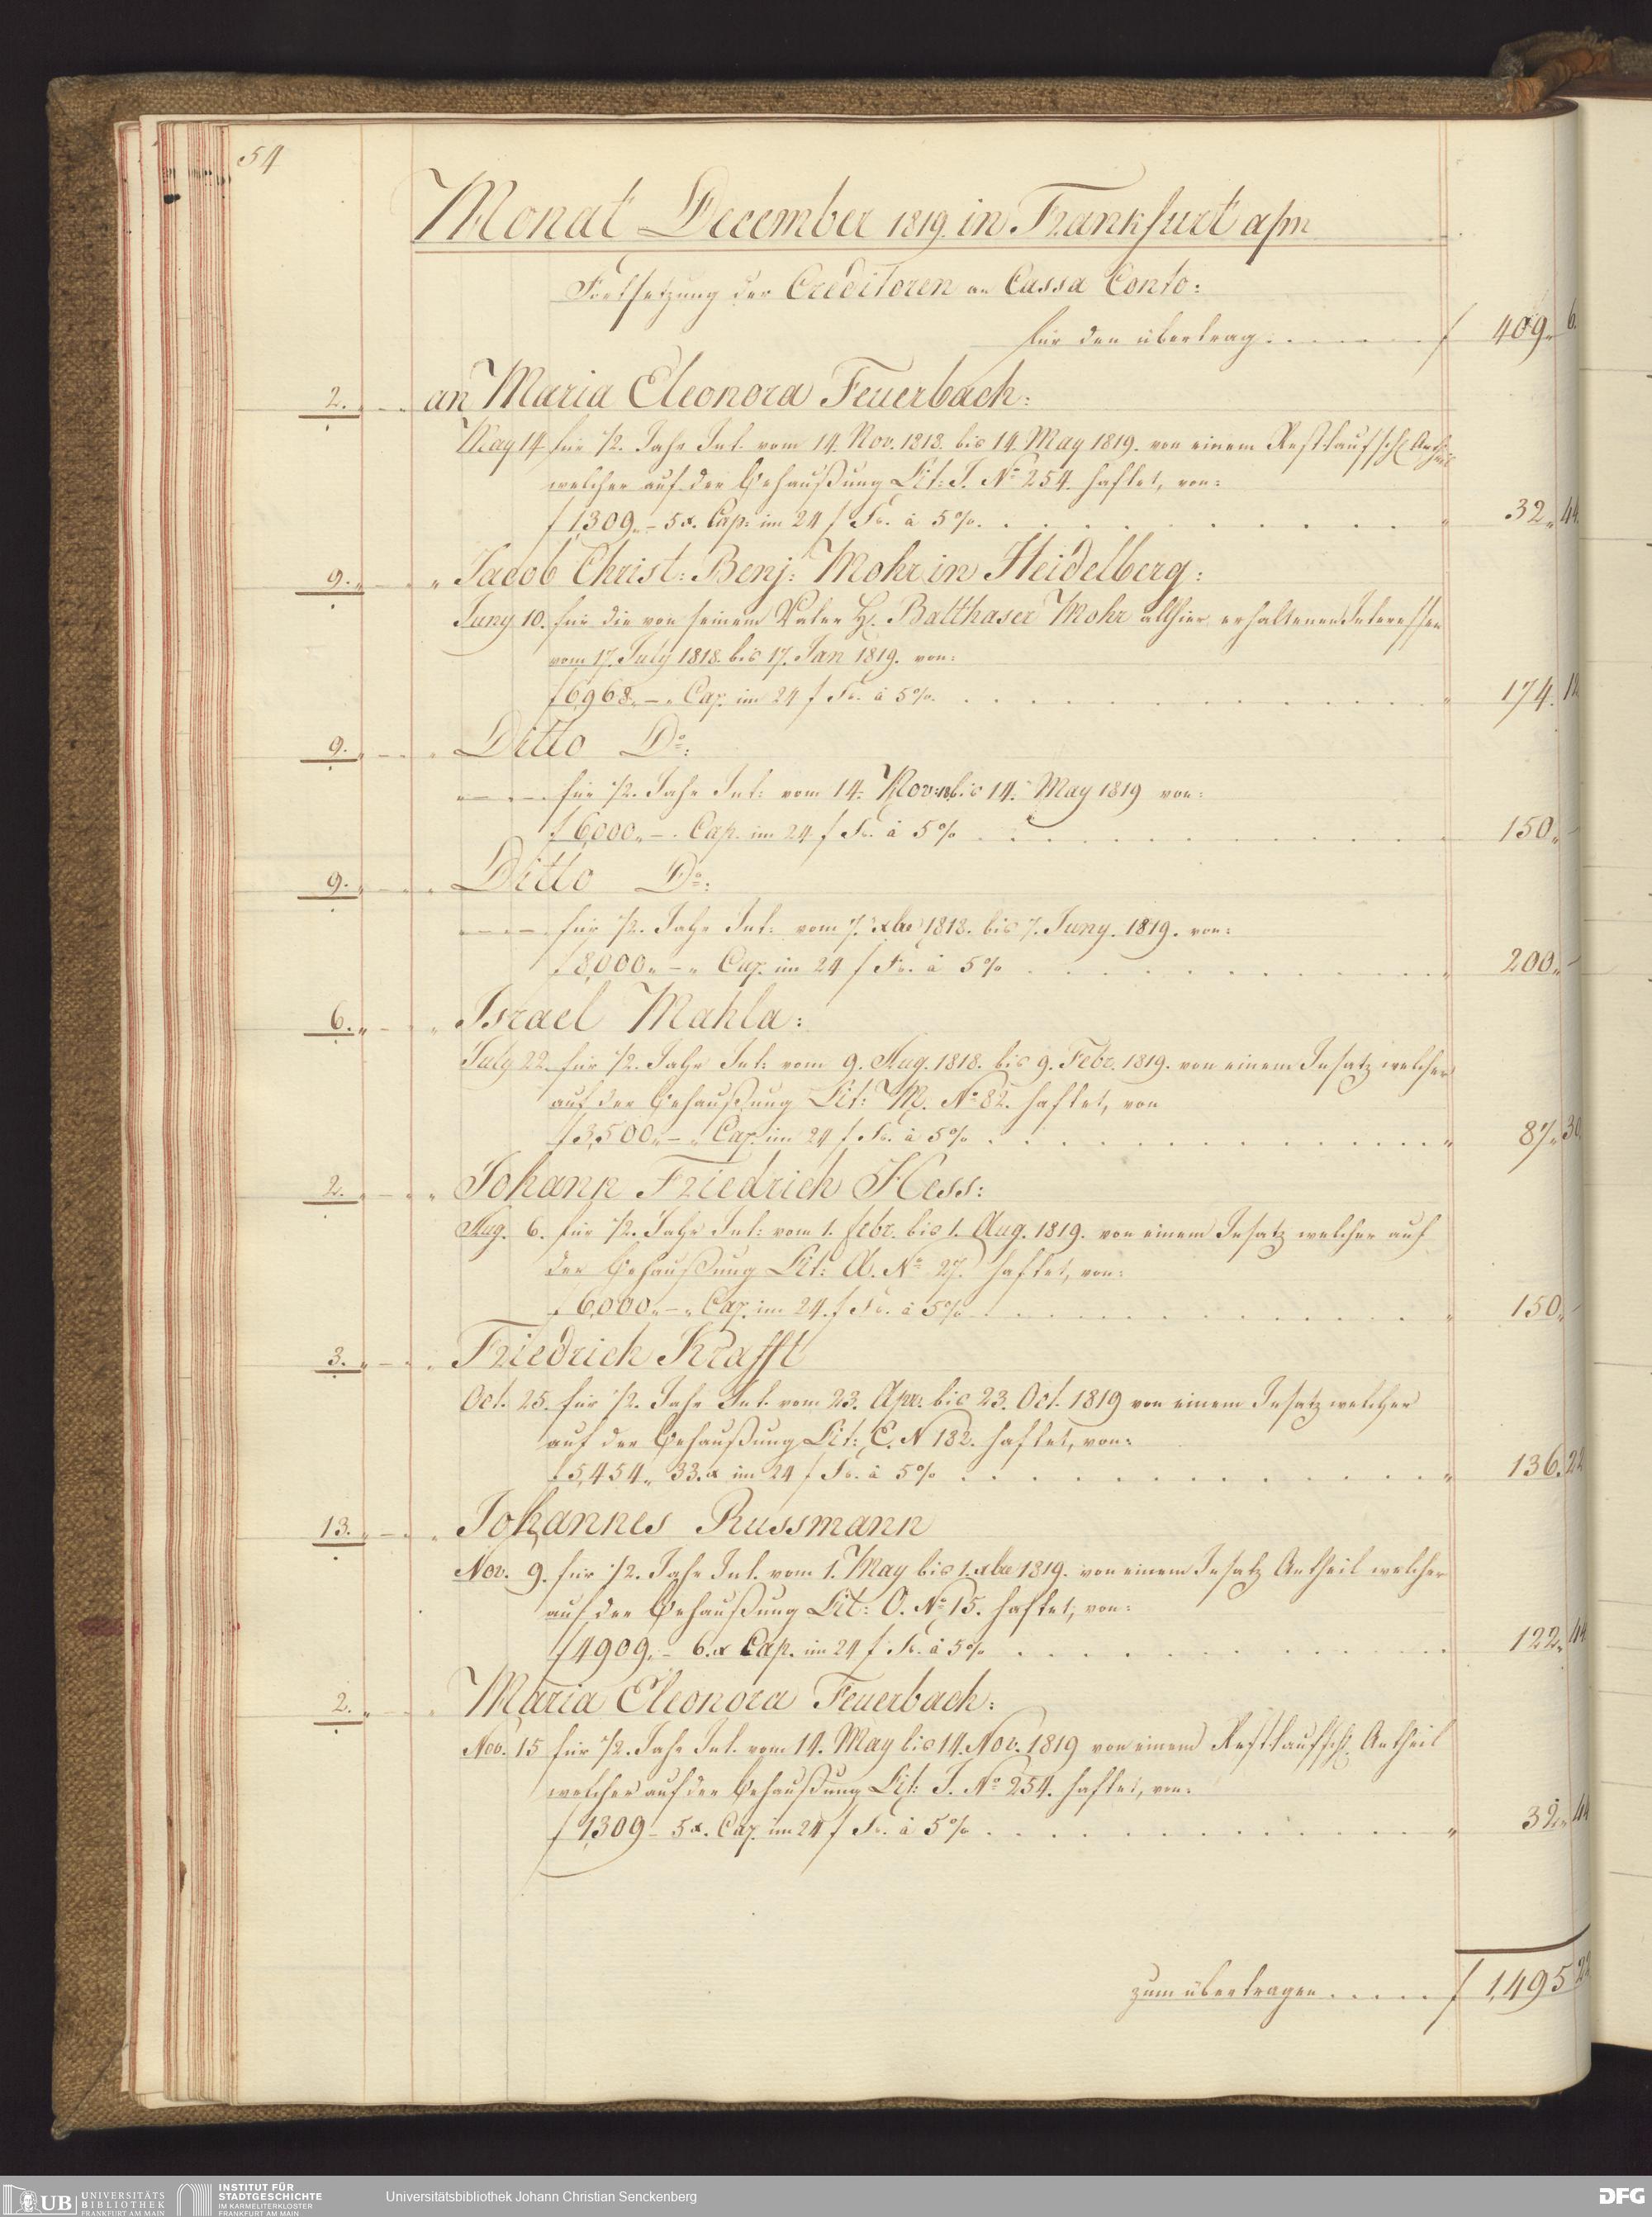 54
Monat December 1819. in Frankfurt a/m
Fortsetzung der Creditoren an Cassa Conto:
für den übertrag . . . . . . f 409 „ 6.
2. „ — „ an Maria Eleonora Feuerbach:
May 14 für 1/2. Jahr Int. vom 14. Nov. 1818. bis 14. May 1819. von einem Restkaufschl Antheil
welcher auf der Behaußung Lit: J. No 254. haftet, von:
f 1,309 „ – 5 x. Cap: im 24 f Fs. à 5 %. . . . . . . . „ 32 „ 44
9. „ — „ „ Jacob Christ: Benj: Mohr in Heidelberg:
Juny 10. für die von seinem Vater H. Balthaser Mohr allhier erhaltenen Interessen
vom 17. July 1818. bis 17. Jan 1819. von:
f 6,968 „ – „ Cap. im 24 f Fs. à 5 %. . . . . . . . „ 174. 12
9. „ — „ „ Ditto Do:
„ — „ — für 1/2. Jahr Int: vom 14. Nov: bis 14. May 1819 von:
f 6,000 „ – „ Cap. im 24 f Fs. à 5 % . . . . . . . . 150 „ –
9. „ — „ „ Ditto Do:
„ — „ — für 1/2. Jahr Int: vom 7. xbr 1818. bis 7. Juny. 1819. von:
f 8,000 „ – „ Cap. im 24 f Fs. à 5 % . . . . . . . . „ 200 „ –
6. „ — „ „ Israel Mahla:
July 22. für 1/2. Jahr Int: vom 9. Aug. 1818. bis 9. Febr. 1819. von einem Insatz welcher
auf der Behaußung Lit: M. No 82. haftet, von
f 3,500 „ – „ Cap. im 24 f Fs. à 5 % . . . . . . . . „ 87 „ 30
2. „ — „ „ Johann Friedrich Hess:
Aug. 6. für 1/2. Jahr Int: vom 1. febr. bis 1. Aug. 1819. von einem Insatz welcher auf
der Behaußung Lit: A. No 27. haftet, von:
f 6,000 „ – „ Cap. im 24. f Fs. à 5 % . . . . . . . . „ 150 „ –
3. „ — „ „ Friedrich Krafft
Oct. 25. für 1/2. Jahr Int. vom 23. Apr. bis 23. Oct. 1819 von einem Insatz welcher
auf der Behaußung Lit: C. N 182. haftet, von:
f 5,454 „ 33. x im 24 f Fs. à 5 % . . . . . . . . „ 136. 22
13. „ — „ „ Johannes Russmann
Nov. 9. für 1/2. Jahr Int. vom 1. May bis 1. xbr 1819. von einem Insatz Antheil welcher
auf der Behaußung Lit: O. No 15. haftet, von:
f 4909 „ – 6. x Cap. im 24 f Fs. à 5 % . . . . . . . . 122 „ 44
2. „ — „ „ Maria Eleonora Feuerbach:
Nov. 15 für 1/2. Jahr Int. vom 14. May bis 14. Nov. 1819 von einem Restkaufschl. Antheil
welcher auf der Behaußung Lit: J. No 254. haftet, von:
f 1,309 – 5 x. Cap. im 24 f Fs. à 5 % . . . . . . . . „ 32 „ 44
zum übertragen . . . . . f 1,495 22
UB UNIVERSITÄTS
BIBLIOTHEK
FRANKFURT AM MAIN
INSTITUT FÜR
STADTGESCHICHTE
IM KARMELITERKLOSTER
FRANKFURT AM MAIN
Universitätsbibliothek Johann Christian Senckenberg
DFG